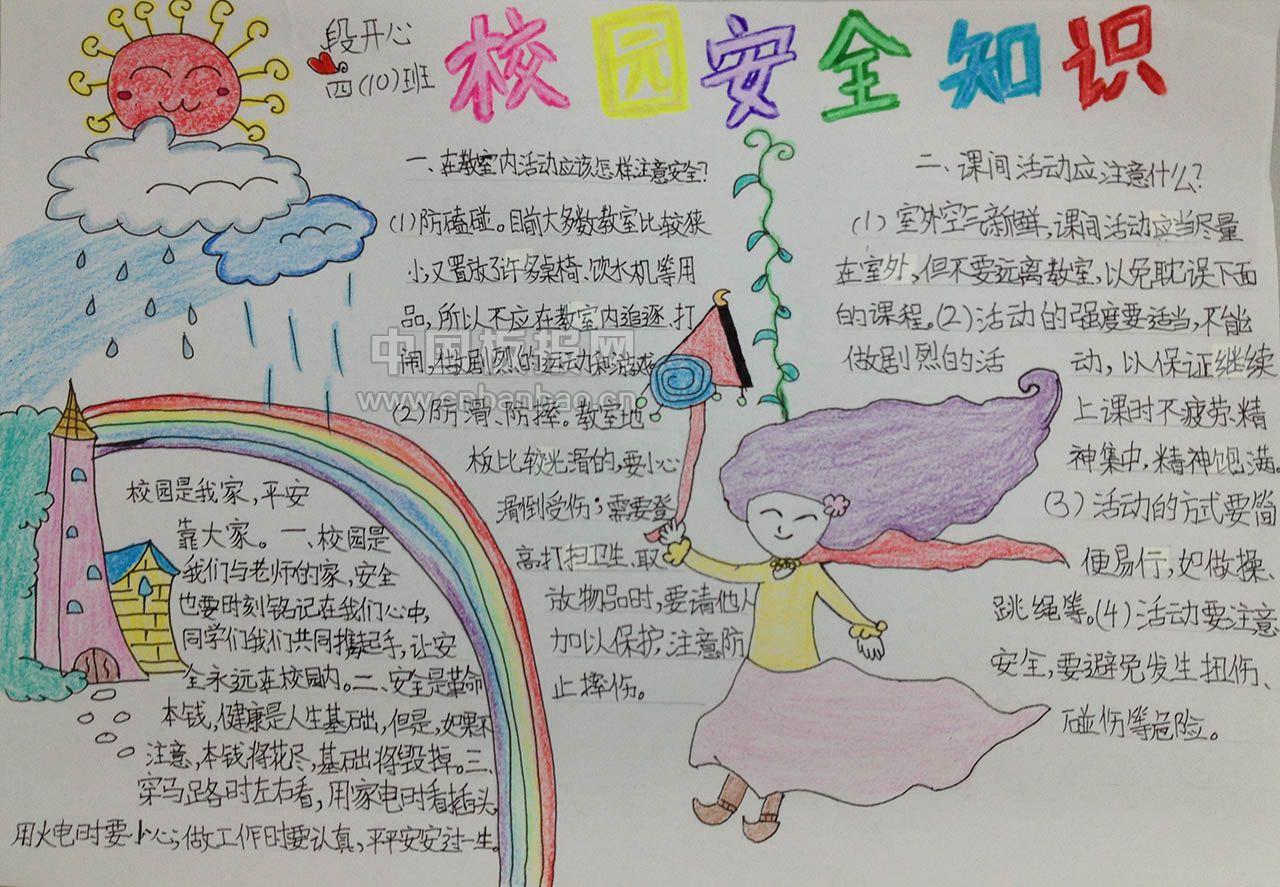 校园安全知识
段开心
四(10)班
一、在教室内活动应该怎样注意安全?
(1)防磕碰。目前大多数教室比较狭
小,又置放了许多桌椅、饮水机等用
品,所以不应在教室内追逐、打
闹,做剧烈的运动和游戏。
(2)防滑、防摔。教室地
板比较光滑的,要小心
滑倒受伤;需要登
高打扫卫生、取
放物品时,要请他人
加以保护,注意防
止摔伤。
二、课间活动应注意什么?
(1)室外空气新鲜,课间活动应当尽量
在室外,但不要远离教室,以免耽误下面
的课程。(2)活动的强度要适当,不能
做剧烈的活动,以保证继续
上课时不疲劳、精
神集中,精神饱满。
(3)活动的方式要简
便易行,如做操、
跳绳等。(4)活动要注意
安全,要避免发生扭伤、
碰伤等危险。
校园是我家,平安
靠大家。一、校园是
我们与老师的家,安全
也要时刻铭记在我们心中,
同学们我们共同携起手,让安
全永远在校园内。二、安全是革命
本钱,健康是人生基础,但是,如果不
注意,本钱将花尽,基础将毁掉。三、
穿马路时左右看,用家电时看插头,
用火电时要小心;做工作时要认真,平平安安过一生。
中国板报网
www.cnbanbao.cn